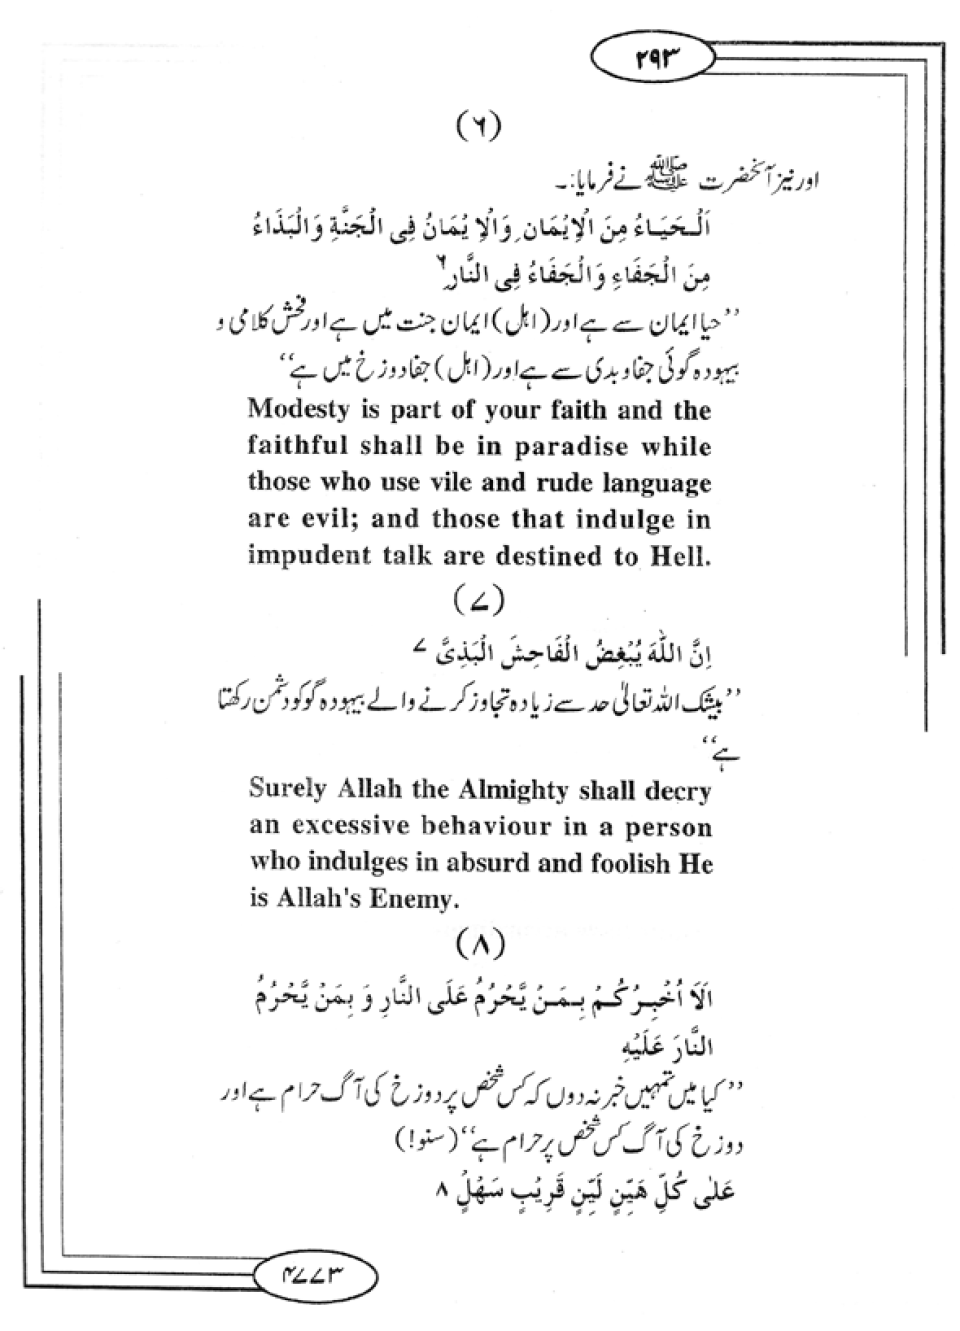 ۲۹۳
(۶)
اور نیز آنحضرت ﷺ نے فرمایا:۔
اَلْحَیَاءُ مِنَ الْاِیْمَانِ وَالْاِیْمَانُ فِی الْجَنَّةِ وَالْبَذَاءُ
مِنَ الْجَفَاءِ وَالْجَفَاءُ فِی النَّارِ ۶
’’حیا ایمان سے ہے اور (اہل) ایمان جنت میں ہے اور فحش کلامی و
بیہودہ گوئی جفا و بدی سے ہے اور (اہل) جفا دوزخ میں ہے‘‘
Modesty is part of your faith and the
faithful shall be in paradise while
those who use vile and rude language
are evil; and those that indulge in
impudent talk are destined to Hell.
(۷)
اِنَّ اللّٰهَ یُبْغِضُ الْفَاحِشَ الْبَذِیَّ ۷
’’بیشک اللہ تعالیٰ حد سے زیادہ تجاوز کرنے والے بیہودہ گو کو دشمن رکھتا
ہے‘‘
Surely Allah the Almighty shall decry
an excessive behaviour in a person
who indulges in absurd and foolish He
is Allah's Enemy.
(۸)
اَلَا اُخْبِرُکُمْ بِمَنْ یَّحْرُمُ عَلَی النَّارِ وَ بِمَنْ یَّحْرُمُ
النَّارَ عَلَیْهِ
’’کیا میں تمہیں خبر نہ دوں کہ کس شخص پر دوزخ کی آگ حرام ہے اور
دوزخ کی آگ کس شخص پر حرام ہے‘‘ (سنو!)
عَلٰی کُلِّ هَیِّنٍ لَیِّنٍ قَرِیْبٍ سَهْلٍ ۸
۴۷۷۳